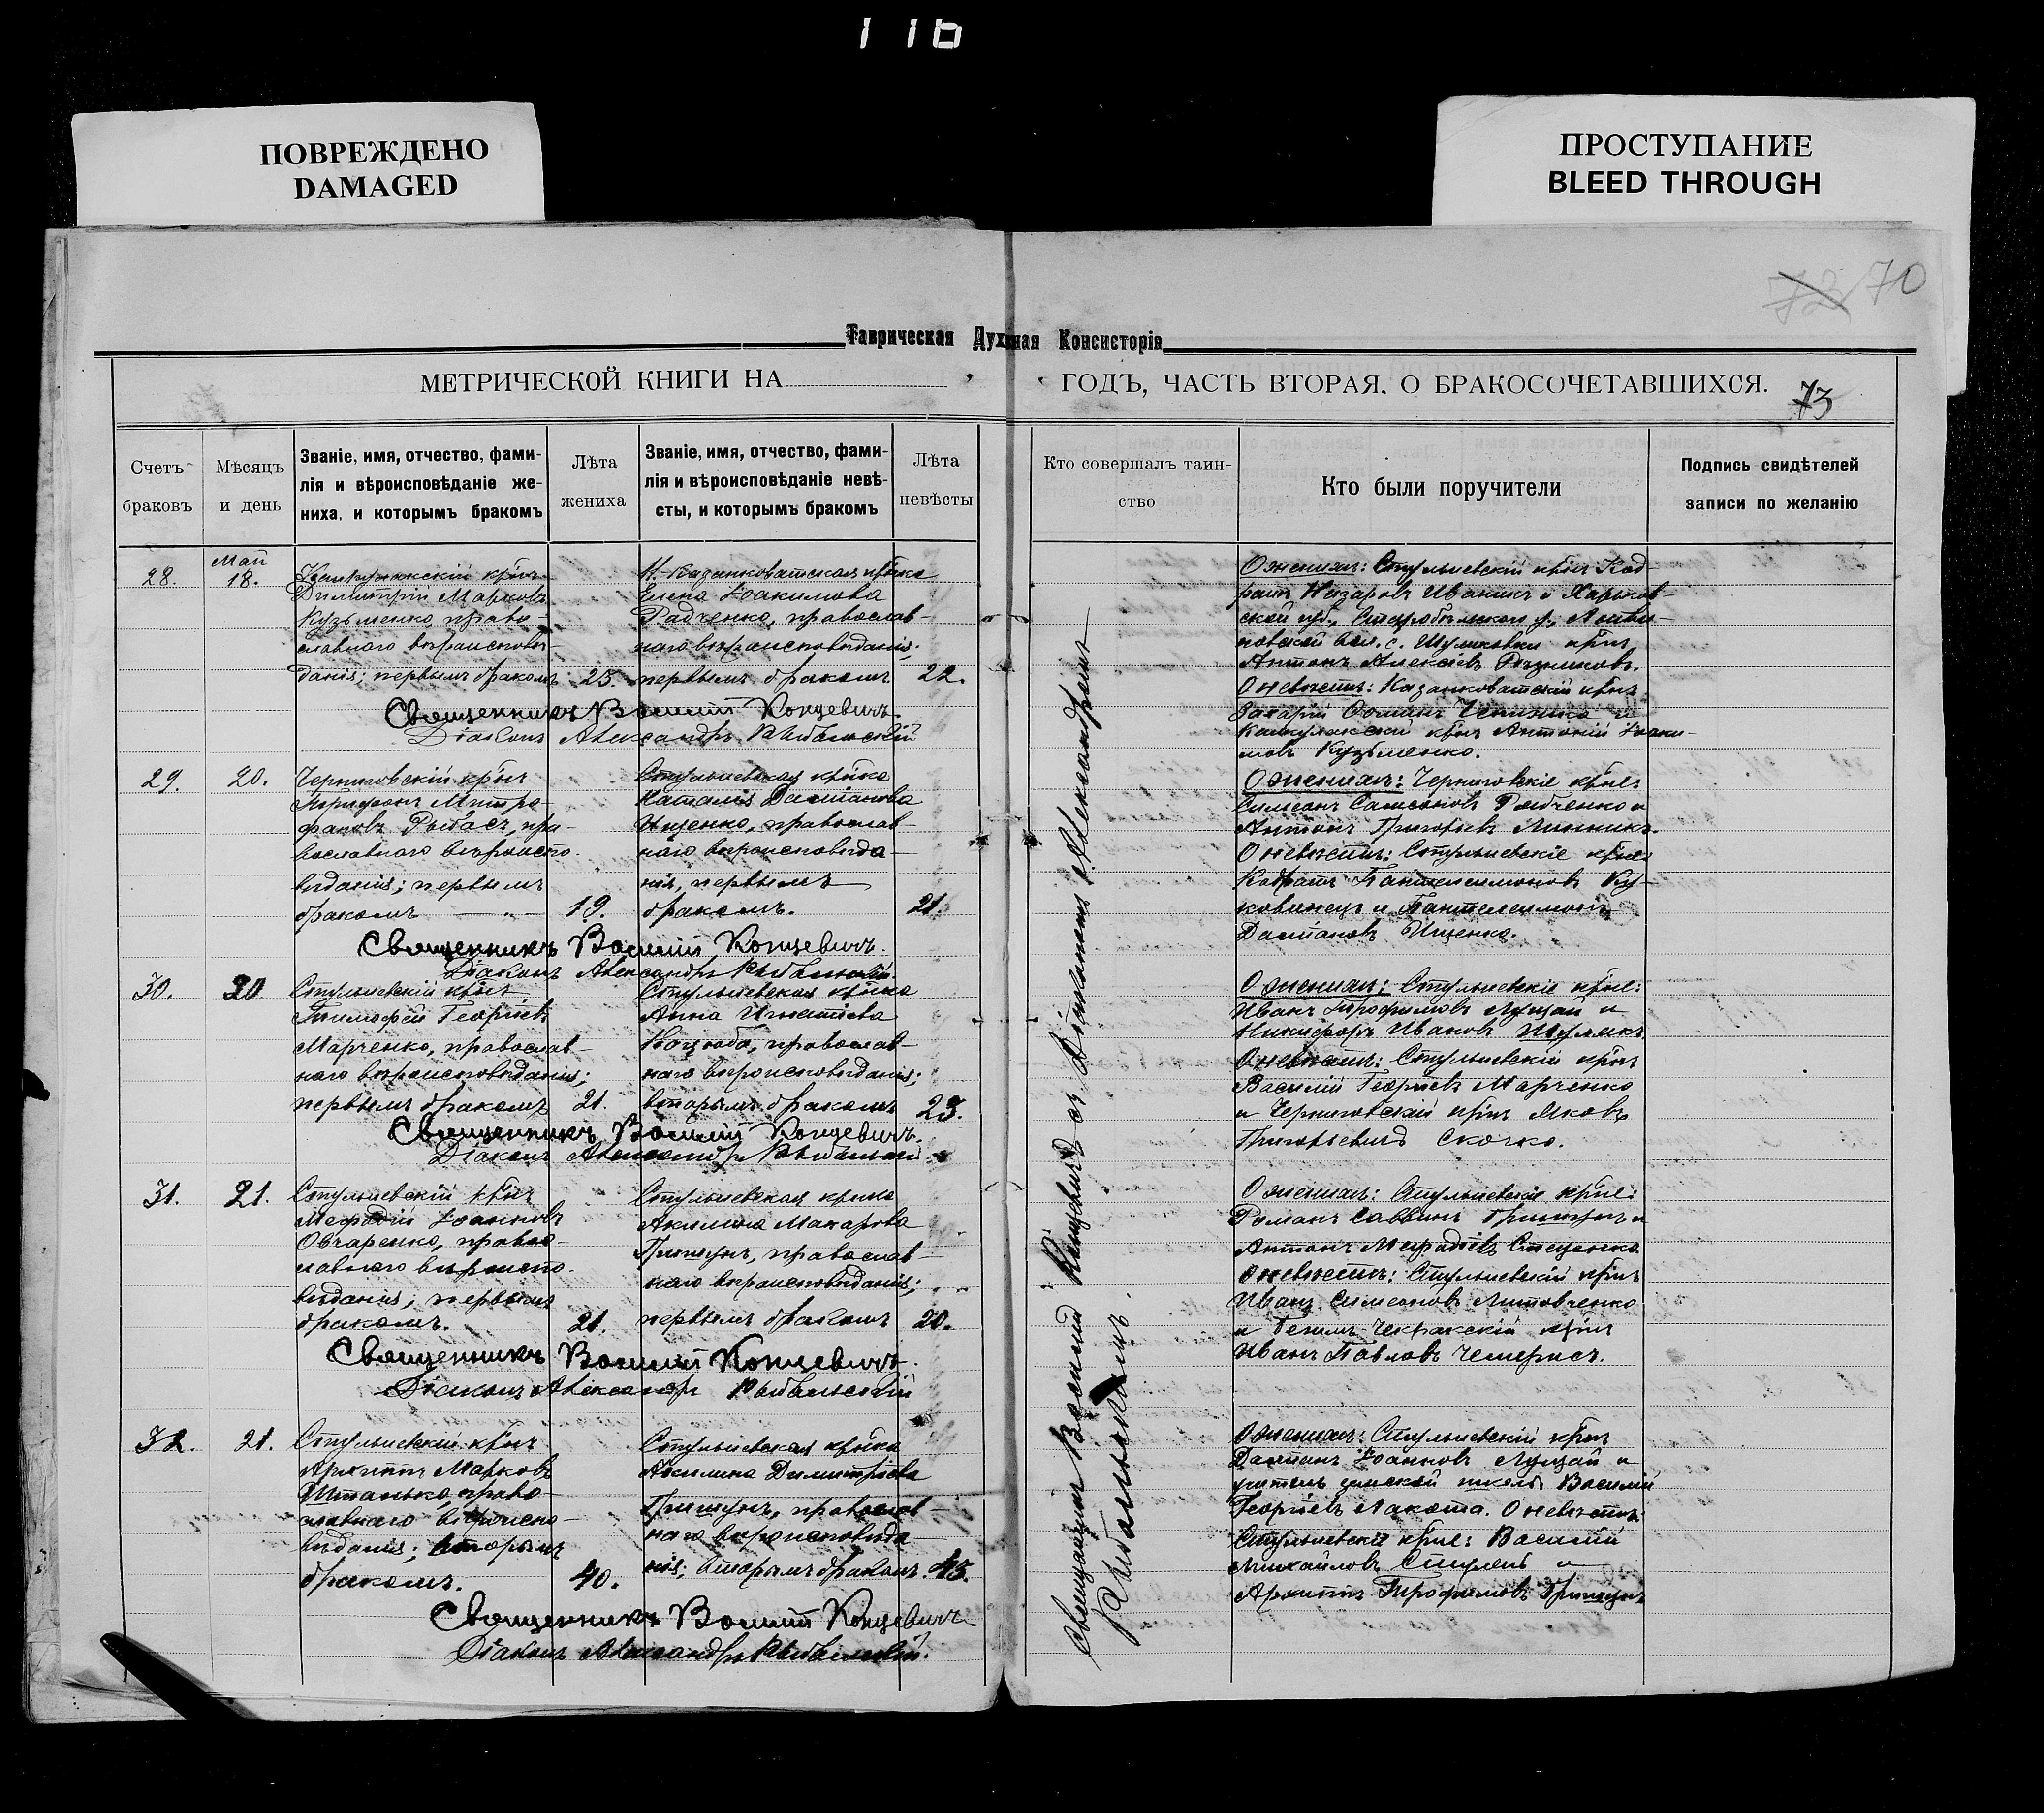 116
ПОВРЕЖДЕНО
DAMAGED
ПРОСТУПАНИЕ
BLEED THROUGH
72 70
Таврическая Духовная Консисторія
МЕТРИЧЕСКОЙ КНИГИ НА
ГОДЪ, ЧАСТЬ ВТОРАЯ, О БРАКОСОЧЕТАВШИХСЯ.
73
Счетъ браковъ
Мѣсяцъ и день
Званіе, имя, отчество, фами-
лія и вѣроисповѣданіе же-
ниха, и которымъ бракомъ
Лѣта жениха
Званіе, имя, отчество, фами-
лія и вѣроисповѣданіе невѣ-
сты, и которымъ бракомъ
Лѣта невѣсты
Кто совершалъ таин-
ство
Кто были поручители
Подпись свидѣтелей
записи по желанію
28.
Май
18.
Димитрій Марковъ
Кузьменко, право-
славнаго вѣроисповѣ-
данія; первымъ бракомъ
25.
Н. Казанковатская кр-нка
Елена Іоакимова
Радченко, православ-
наго вѣроисповѣданія;
первымъ бракомъ
22.
Священникъ Василій Концевичъ
Діаконъ Александръ Рыбальскій
О женихѣ: Стульневскій кр-нъ Код-
ратъ Назаровъ Иваникъ и Харьков-
ской губ., Старобѣльскаго у.,
вол. с. Шуликовки кр-нъ
Антонъ Алексіевъ
О невѣстѣ: Казанковатскій кр-нъ
Захарій
кр-нъ Антоній Іоаки-
мовъ Кузьменко.
29.
20.
Черниговскій кр-нъ
Трифонъ Митро-
фановъ Рыбасъ, пра-
вославнаго вѣроиспо-
вѣданія; первымъ
бракомъ — „ —
19.
Стульневская кр-нка
Наталія Даміанова
Ищенко, православ-
наго вѣроисповѣда-
нія, первымъ
бракомъ.
21.
Священникъ Василій Концевичъ.
Діаконъ Александръ Рыбальскій.
О женихѣ: Черниговскіе кр-не:
Симеонъ Самсоновъ Рябченко и
Антонъ Григорьевъ Линникъ.
О невѣстѣ: Стульневскіе кр-не:
Кодратъ Пантелеимоновъ Ку-
ковинецъ и Пантелеимонъ
Даміановъ Ищенко.
30.
20
Стульневскій кр-нъ
Тимофей Георгіевъ
Марченко, православ-
наго вѣроисповѣданія;
первымъ бракомъ
21.
Стульневская кр-нка
Анна Игнатіева
Коцюба, православ-
наго вѣроисповѣданія;
вторымъ бракомъ
25.
Священникъ Василій Концевичъ.
Діаконъ Александръ Рыбальскій
О женихѣ: Стульневскіе кр-не:
Иванъ Трофимовъ Луцай и
Никифоръ Ивановъ Шулякъ.
О невѣстѣ: Стульневскій кр-нъ
Василій Георгіевъ Марченко
и Черниговскій кр-нъ Яковъ
Григорьевичъ Скочко.
31.
21.
Стульневскій кр-нъ
Мефодій Іоанновъ
Овчаренко, право-
славнаго вѣроиспо-
вѣданія; первымъ
бракомъ.
21.
Стульневская кр-нка
Акилина Макарова
Гришунъ, православ-
наго вѣроисповѣданія;
первымъ бракомъ
20.
Священникъ Василій Концевичъ.
Діаконъ Александръ Рыбальскій
О женихѣ: Стульневскіе кр-не:
Романъ Саввинъ Гришунъ и
Антонъ Мефодіевъ Стеценко
О невѣстѣ: Стульневскій кр-нъ
Иванъ Симеоновъ Литовченко
и Бегимъ-Чекракскій кр-нъ
Иванъ Павловъ Чемерисъ.
32.
21.
Стульневскій кр-нъ
Архиппъ Марковъ
Штанько, право-
славнаго вѣроиспо-
вѣданія; вторымъ
бракомъ.
40.
Стульневская кр-нка
Акилина Димитріева
Гришунъ, православ-
наго вѣроисповѣда-
нія; вторымъ бракомъ.
45.
Священникъ Василій Концевичъ
Діаконъ Александръ Рыбальскій.
О женихѣ: Стульневскій кр-нъ
Даміанъ Іоанновъ Луцай и
учитель земской школы Василій
Георгіевъ Лакота. О невѣстѣ:
Стульневскіе кр-не: Василій
Михайловъ Стулень и
Архиппъ Трофимовъ Гришунъ
Священникъ Василій Концевичъ съ діакономъ Александромъ
Рыбальскимъ.